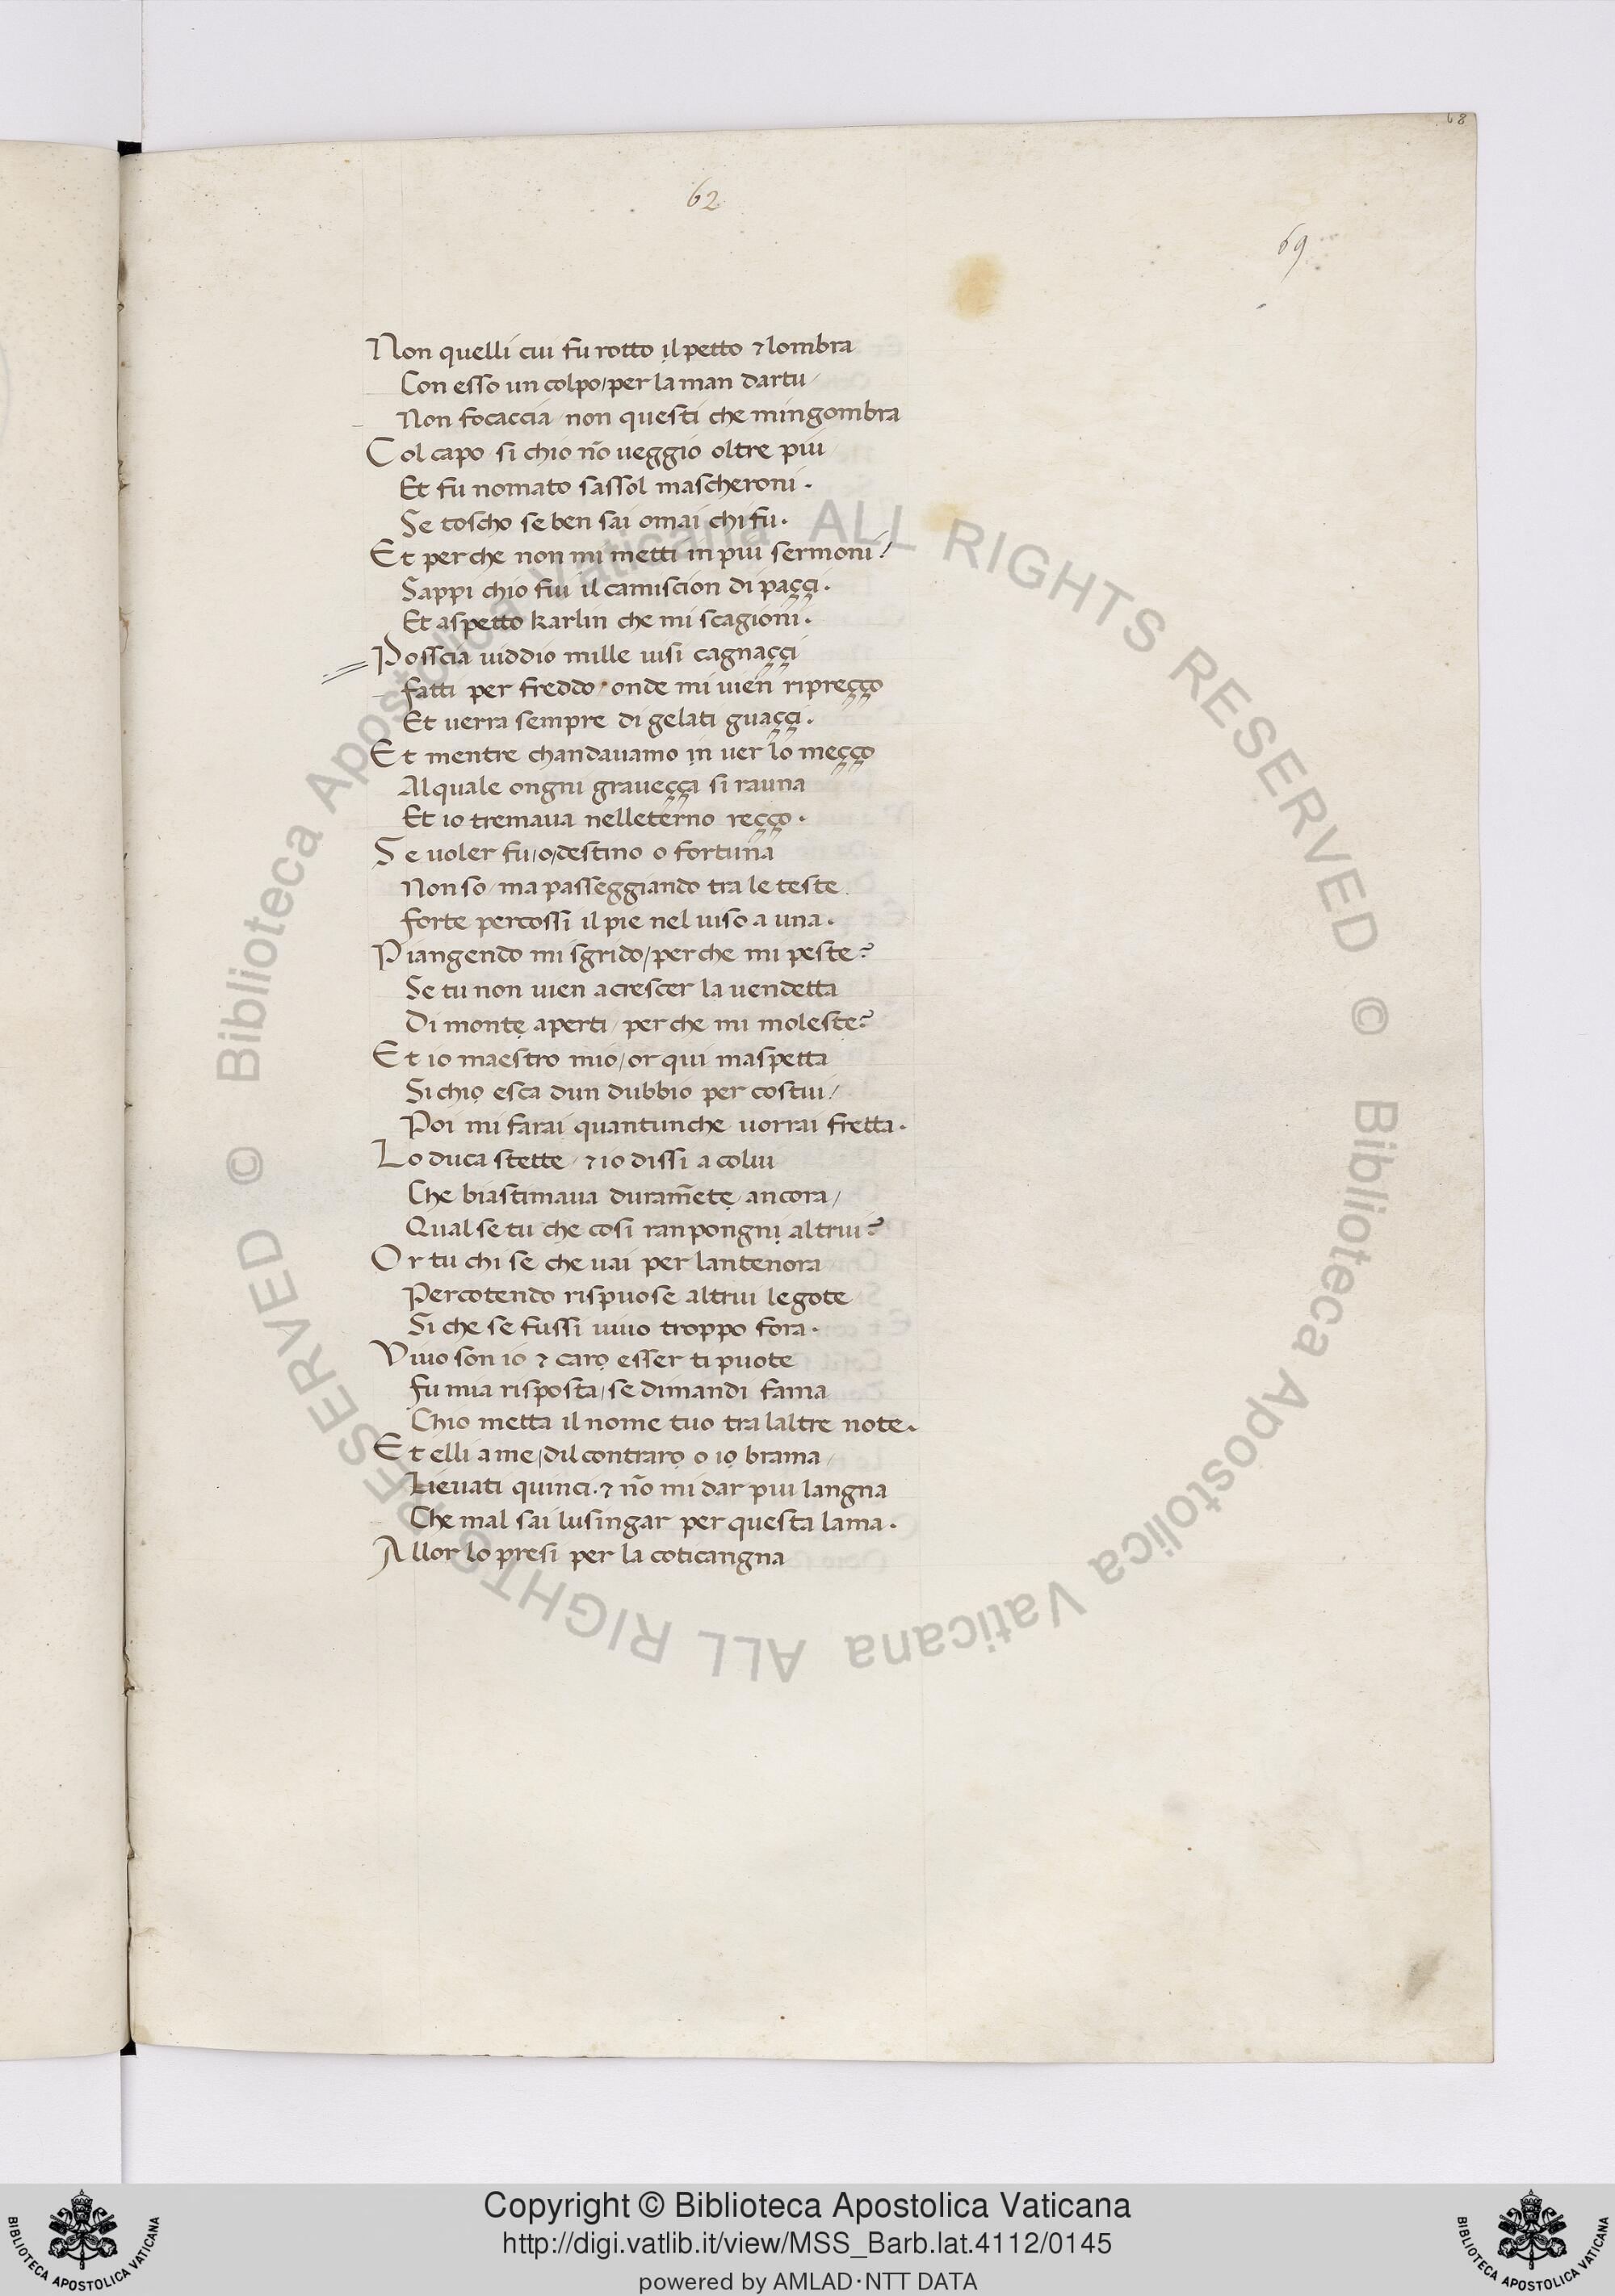 68
62
69
Non quelli cui fu rotto ịl petto ⁊ lombra
Con esso un colpo/per la man dartu/
Non focaccia/non questi che mingombra
Col capo si chio nõ ueggio oltre piu
Et fu nomato sassol mascheroni.
Se toscho se ben sai omai chi fu.
Et perche non mi metti in piu sermoni/
Sappi chio fui il camiscion di paççi.
Et aspetto karlin che mi scagioni.
Posscia uiddio mille uisi cagnaççi
fatti per freddo/onde mi uien ripreçço
Et uerra sempre di gelati guaççi.
Et mentre chandauamo ịn uer lo meçço
Al quale ongni graueçça si rauna
Et io tremaua nelleterno reçço.
Se uoler fu/o/destino o fortuna
Non so/ma passeggiando tra le teste
forte percossi il pie nel uiso a una.
Piangendo mi sgrido/perche mi peste?
Se tu non uien a crescer la uendetta
Di montẹ aperti/perche mi moleste?
Et io maestro mio/or qui maspetta
Si chiọ esca dun dubbio per costui/
Poi mi farai quantunche uorrai fretta.
Lo duca stette/⁊ io dissi a colui
Che biastimaua duramẽtẹ ancora/
Qual se tu che cosi ranpongnị altrui?
Or tu chi se che uai per lantenora
Percotendo rispuose altrui le gote
Si che se fussi uiuo troppo fora.
Viuo son io ⁊ carọ esser ti puote
fu mia risposta/se dimandi fama
Chio metta il nome tuo tra laltre note.
Et elli a me/dil contrarọ o iọ brama/
Lieuati quinci.⁊ nõ mi dar piu langna
Che mal sai lusingar per questa lama.
Allor lo presi per la coticangna
© Biblioteca Apostolica Vaticana ALL RIGHTS RESERVED
© Biblioteca Apostolica Vaticana ALL RIGHTS RESERVED
BIBLIOTECA APOSTOLICA VATICANA
Copyright © Biblioteca Apostolica Vaticana
http://digi.vatlib.it/view/MSS_Barb.lat.4112/0145
powered by AMLAD·NTT DATA
BIBLIOTECA APOSTOLICA VATICANA